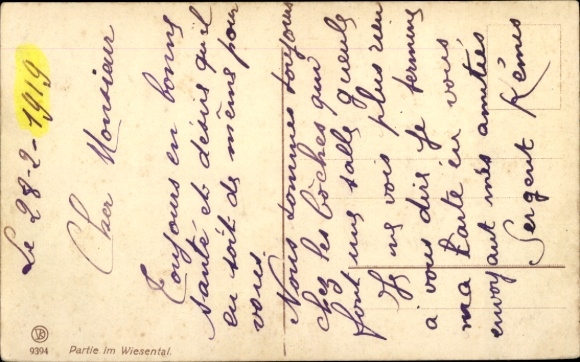 Le 28-2-1919
Cher Monsieur
Toujours en bonne
santé et désire qu'il
en soit de même pour
vous.
Nous sommes toujours
chez les bôches qui
font une salle gueule
Je ne vois plus rien
a vous dire je termine
ma carte en vous
envoyant mes amitiées
Sergent Rémus
9394 Partie im Wiesental.